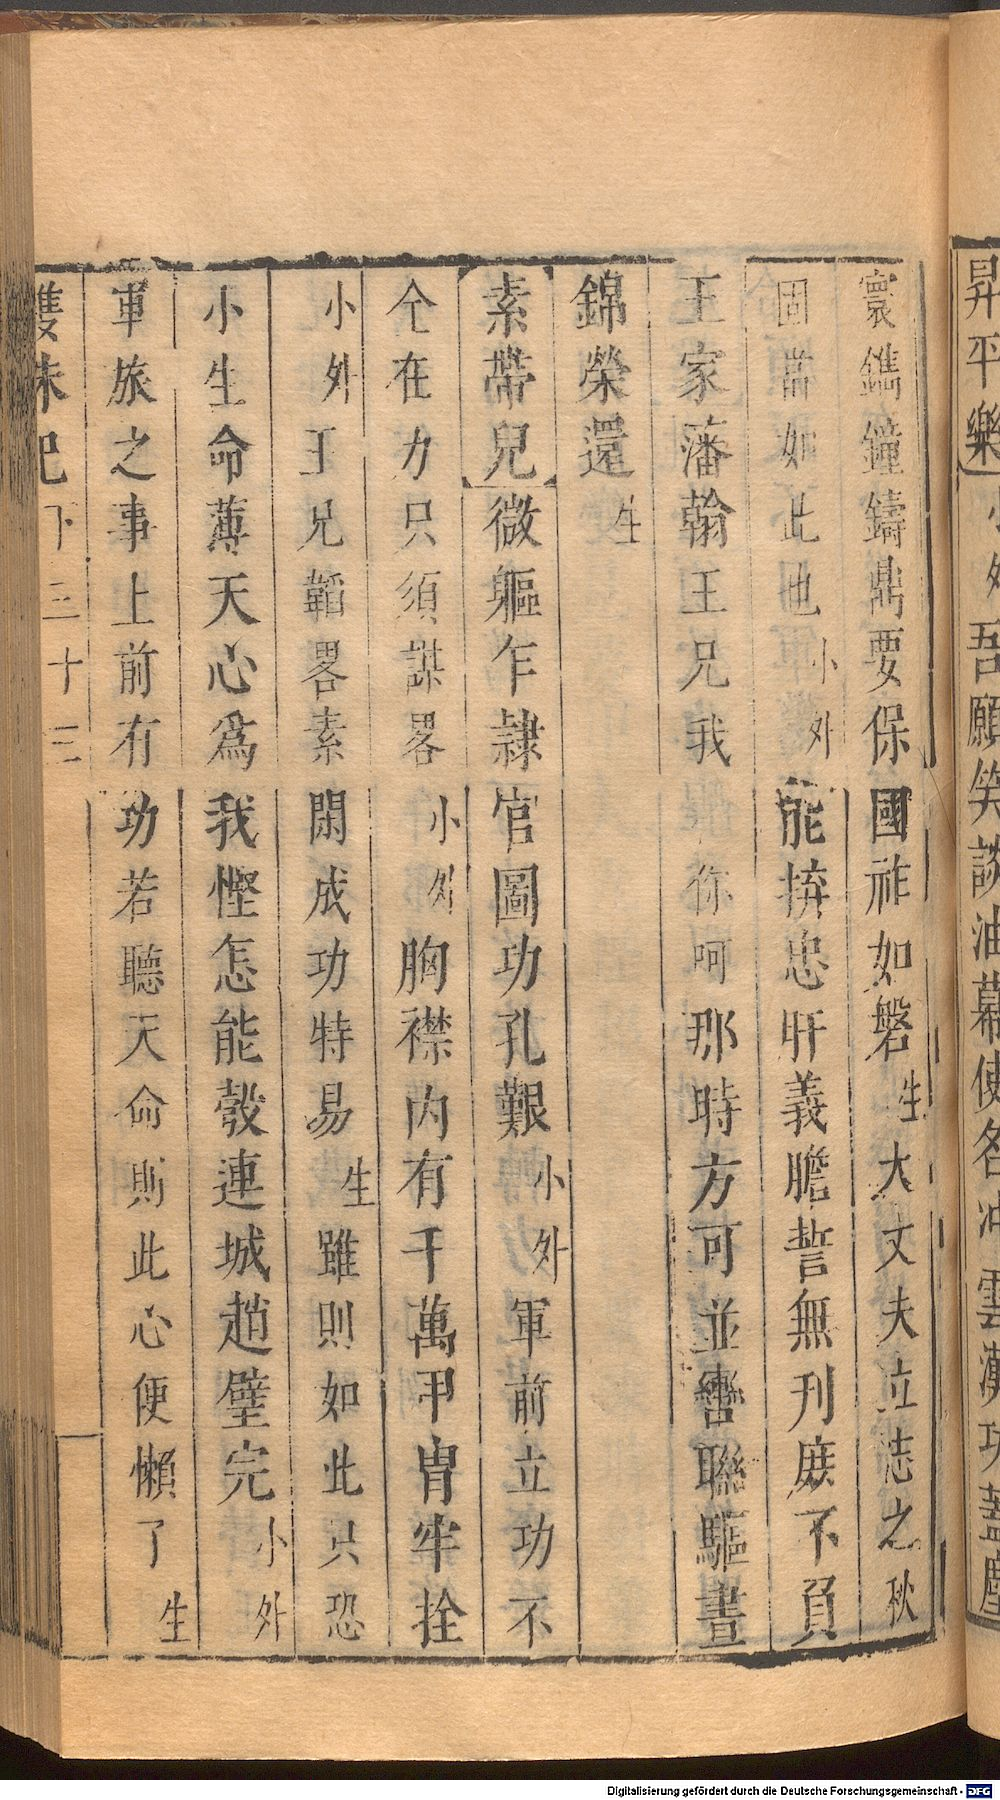 昇平樂小外吾願笑談油幕使名冲雲漢功蓋塵
寰鐫鐘鑄鼎要保國祚如磐生大丈夫立志之秋
固當如此也小外能拚忠肝義膽誓無刋庶不負
王家藩翰王兄我你呵那時方可並轡聯驅晝
錦榮還生
素帶兒微軀乍隷官圖功孔艱小外軍前立功不
仝在力只須謀畧小外胸襟内有千萬甲胄牢拴
小外王兄韜畧素閑成功特易生雖則如此只恐
小生命薄天心爲我慳怎能彀連城趙璧完小外
軍旅之事上前有功若聽天命則此心便懶了生
雙珠記下三十三
Digitalisierung gefördert durch die Deutsche Forschungsgemeinschaft - DFG